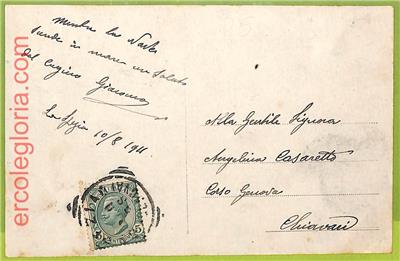 mentre la Nave
scende in mare un saluto
dal cugino Giacomo
La Spezia 10/8 1911
Alla Gentile Signora
Angelina Casaretto
Corso Genova
Chiavari
ercolegloria.com